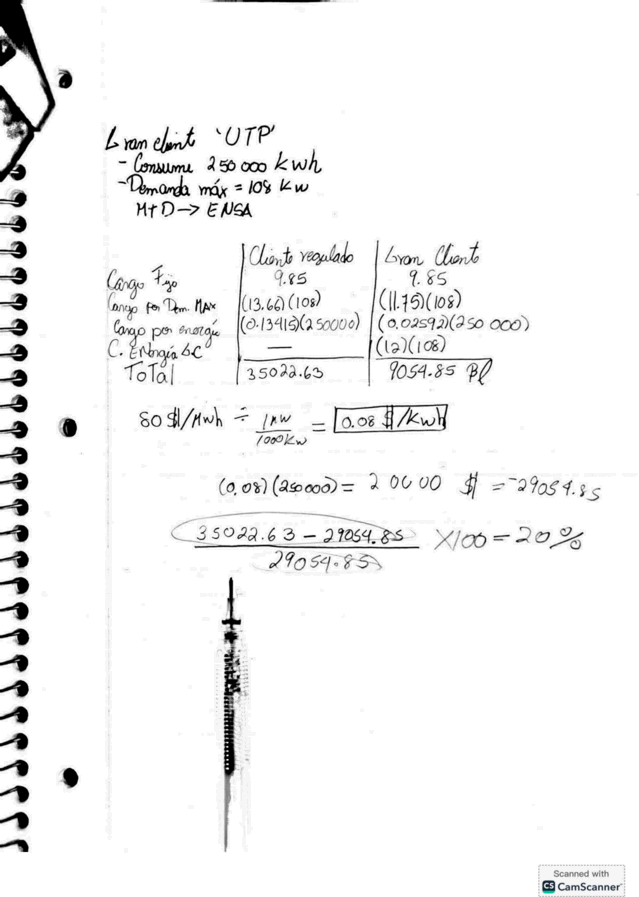 Gran client 'UTP'
- Consume 250 000 kWh
- Demanda máx = 108 kW
MTD → ENSA
Cliente regulado Gran Cliente
Cargo Fijo 9.85 9.85
Cargo por Dem. Max (13.66)(108) (11.75)(108)
Cargo por energía (0.13415)(250000) (0.02592)(250 000)
C. ENergía GC — (12)(108)
ToTal 35022.63 9054.85 Bl
80 $/Mwh ÷ 1MW/1000KW = 0.08 $/Kwh
(0.08)(250000) = 20000 $ = 29054.85
35022.63 - 29054.85
29054.85
X100 = 20%
Scanned with
CS CamScanner